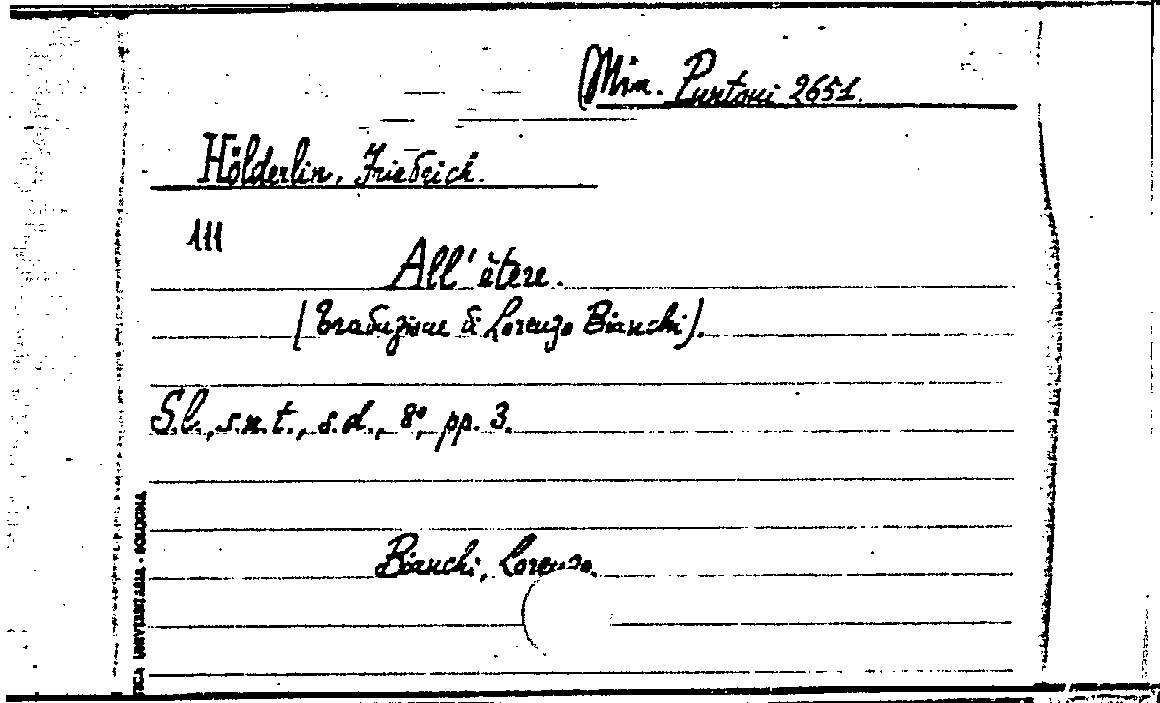 Min. Puntoni 2651.
Hölderlin, Friedrich.
111
All' ètere.
(Traduzione di Lorenzo Bianchi).
S.l., s.n.t., s.d., 8°, pp. 3.
Bianchi, Lorenzo.
UNIVERSITARIA - BOLOGNA